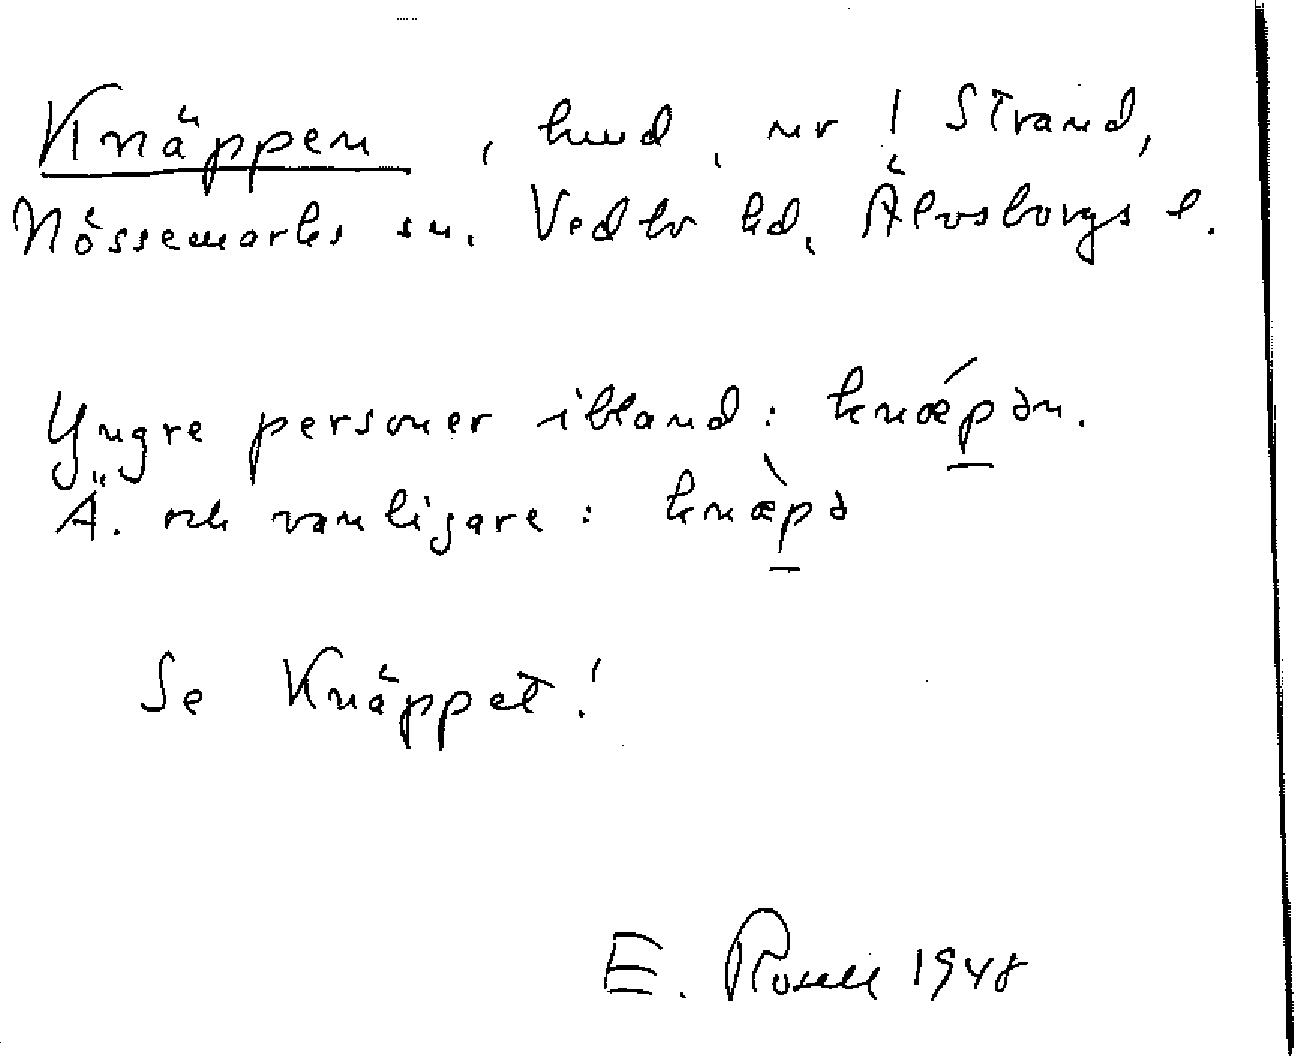 Knäppen, hmd, nr 1 Strand,
Nössemarks sn. Vedbo hd, Älvsborgs l.
Yngre personer ibland: knǽpən.
Ä. och vanligare: knæ̀pə
Se Knäppet!
E. Rosell 1948